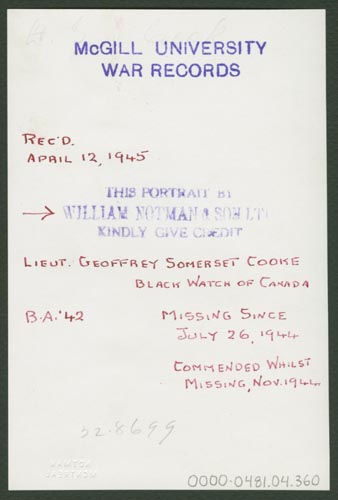 McGILL UNIVERSITY
WAR RECORDS
REC'D.
APRIL 12, 1945
THIS PORTRAIT BY
→ WILLIAM NOTMAN & SON LTD
KINDLY GIVE CREDIT
LIEUT. GEOFFREY SOMERSET COOKE
BLACK WATCH OF CANADA
B.A. '42
MISSING SINCE
JULY 26, 1944
COMMENDED WHILST
MISSING, NOV. 1944
52-8699
NOTMAN
MONTREAL
0000-0481.04.360